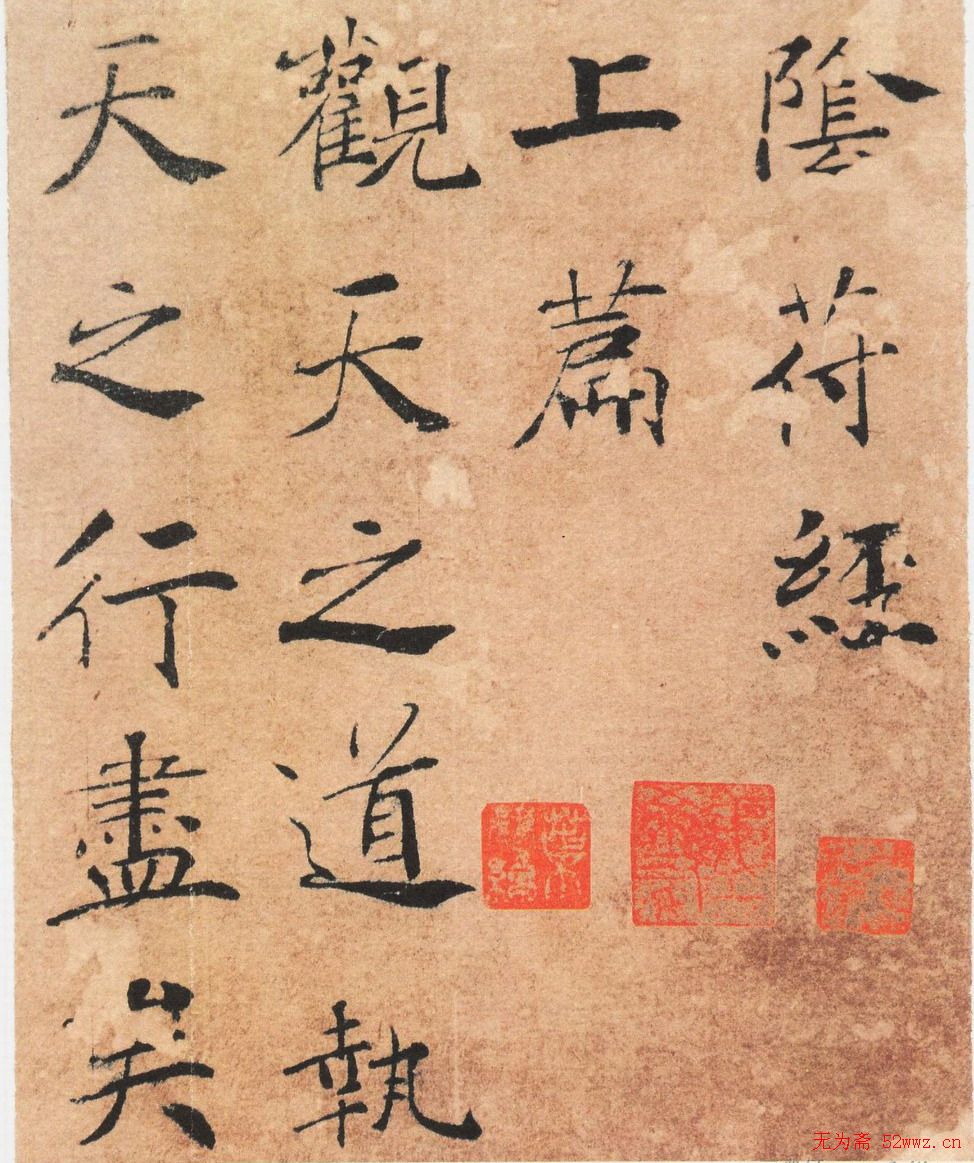 陰符經
上篇
觀天之道執
天之行盡矣
无为斋 52wwz.cn